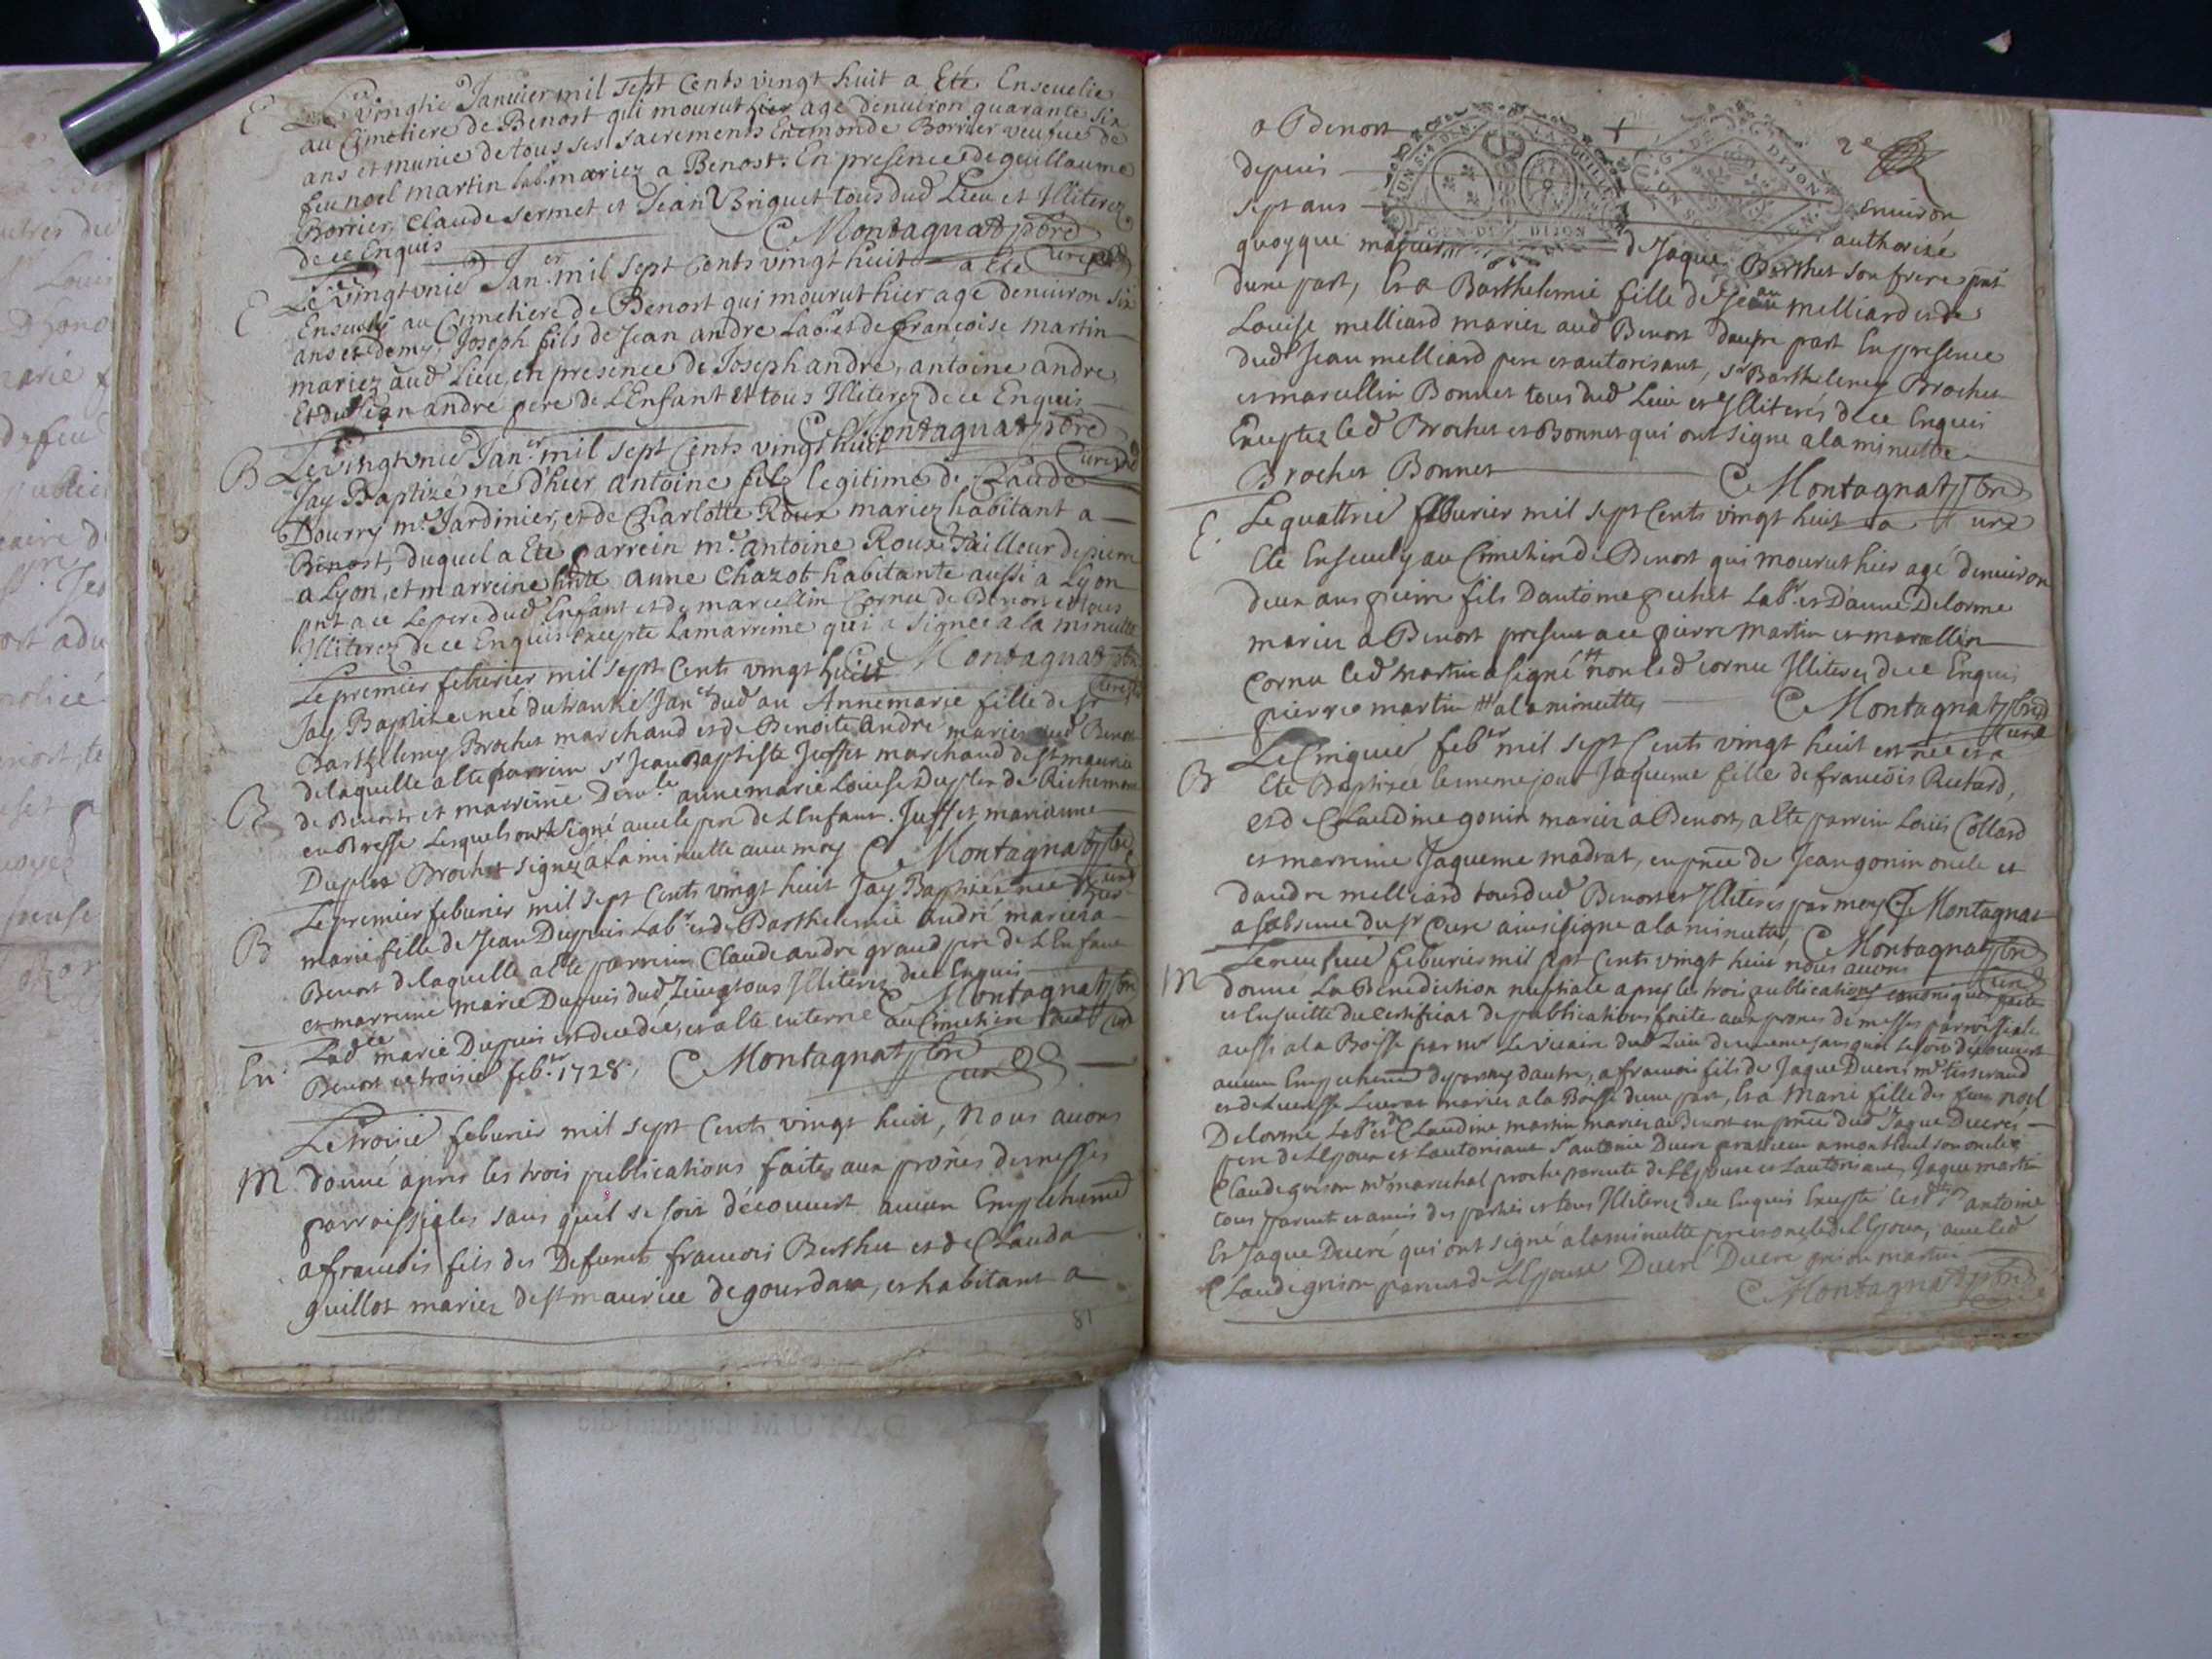 E Le vingtie Januier mil sept Cents vingt huit a Eté Enseuelie
au Cimetiere de Benost qui mourut hier age denuiron quarante six
ans et munie de tous ses sacrements Enemonde Borrier veufue de
feu noel martin labr mariez a Benost. En presence de guillaume
Borrier, Claude sermet et Jean Briquet tous dud Lieu et Illiterez
de ce Enquis C Montagnat pbre
Curé
E Le vingt vnie Janer mil sept Cents vingt huit a ete
Enseueli au Cimetiere de Benost qui mourut hier age denuiron six
ans et demy, Joseph fils de Jean andre Labr et de francoise martin
mariez aud Lieu, en presence de Joseph andre, antoine andre,
Et dud Jean andre pere de LEnfant Et tous Illiterez de ce Enquis
C Montagnat pbre
Curé
B Le vingt vnie Janer mil sept Cents vingt huit
Jay Baptizé né d'hier antoine fils legitime de Claude
Dourry mr Jardinier, et de Charlotte Roux mariez habitant a
Benost, duquel a Eté parrein mr antoine Roux Tailleur de pierre
a Lyon, et marreine anne Chazot habitante aussi a Lyon
pnt a ce Le pere dud Enfant et de marcellin Cornu de Benost et tous
Illiterez de ce Enquis excepté la marreine qui a signée a la minutte
C Montagnat pbre
Curé
Le premier feburier mil sept Cents vingt huit
Jay Baptizee née du trantie Janer dud an Annemarie fille de sr
Barthelemy Brochet marchand et de Benoite andré mariez aud Benost
B de laquelle a ete parrein sr Jean Baptiste Juffet marchand de st maurice
de Benost et marreine Demle annemarie Louise Duplex de Richemont
en Bresse Lesquels ont signé auec le pere de LEnfant. Juffet marianne
Duplex Brochet signez a la minutte auec moy C Montagnat pbre
Curé
Le premier feburier mil sept Cents vingt huit Jay Baptizé née
B marie fille de Jean Dupuis Labr et de Barthelemie andré mariez a
Benost de laquelle a ete parrein Claude andré grand pere de LEnfant
et marreine marie Dupuis dud Lieu et tous Illiterez de ce Enquis
C Montagnat pbre
Curé
En. Ladce marie Dupuis est decedée, et a ete enterré au Cimetiere dud
Benost ce troisie feber 1728. C Montagnat pbre
curé
Le troisie feburier mil sept Cents vingt huit, Nous auons
M donné apres les trois publications faites aux prônes de messes
parroissiales sans quil se soit découuert aucun Empechemt
a francois fils des Defunts francois Berthet et de Clauda
guillot mariez de st maurice de gourdan, et habitant a
81
a Benost 2e
depuis
sept ans Enuiron
quoyque majeur de Jaque Berthet son frere pnt authorizé
dune part, Et a Barthelemie fille de Jean melliard et de
Louise melliard mariez aud Benost dautre part En presence
dud Jean melliard pere et autorisant, sr Barthelemy Brochet
et marcellin Bonnet tous dud Lieu et Illiterés de ce Enquis
Exceptez led Brochet et Bonnet qui ont signe a la minutte
Brochet Bonnet C Montagnat pbre
Curé
E. Le quattrie feburier mil sept Cents vingt huit a
Ete Enseuely au Cimetiere de Benost qui mourut hier agé denuiron
deux ans pierre fils Dantoine pechet Labr et Danne Delorme
mariez a Benost present a ce pierre martin et marcellin
Cornu led martin a signé # non led cornu Illiterez de ce Enquis
pierre martin # a la minutte C Montagnat pbre
Curé
Le Cinquie feber mil sept Cents vingt huit est née et a
B Ete Baptizée le meme jour Jaqueme fille de francois Rutard,
et de Claudine gonin mariez a Benost, a ete parrein Louis Collard
et marreine Jaqueme madrat, en pnce de Jean gonin oncle et
dandre melliard tous dud Benost et Illiterés par moy C Montagnat
a labsence du sr Curé ainsi signe a la minutte, C Montagnat pbre
Curé
Le neufuie feburier mil sept Cents vingt huit nous auons
M donné La Benediction nuptiale apres les trois publications canoniques faite
et Ensuitte du Certificat de publications faites aux prones de messes parroissiale
aussi a la Boisse par mr Le vicaire dud Lieu de meme sans quil se soit découuert
aucun Empechemt de part ny dautre, a francois fils de Jaque Ducré mr tisserand
et de Lucresse Leurat mariez a la Boisse dune part, Et a Marie fille des feux noel
Delorme Labr et de Claudine martin mariez a Benost en pnce dud Jaque Ducré
pere de LEpoux et Lautorisant sr antoine Ducre praticien a montluel son oncle
Claude grison mr marechal proche parent de LEpouse et Lautorisant, Jaque martin
tous parents et amis des parties et tous Illiterez de ce Enquis Excepté lesd antoine
Et Jaque Ducré qui ont signé a la minutte pere et oncle de LEpoux, auec led
Claude grison parent de LEpouse Ducré Ducre grison martin
C Montagnat pbre
curé